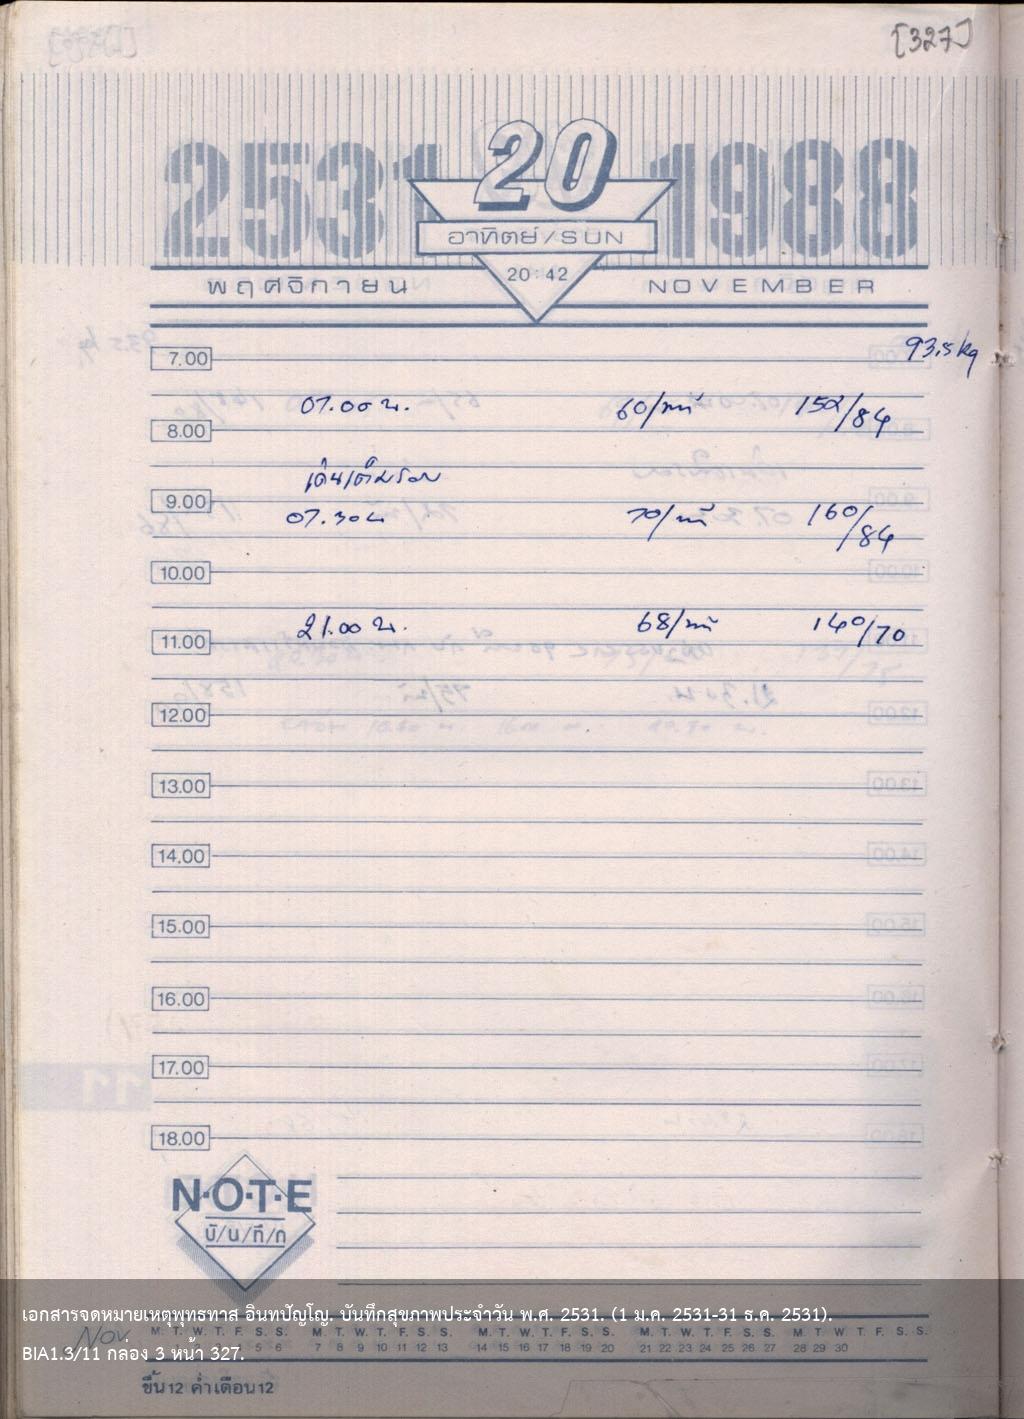 [327]
2531 20 1988
อาทิตย์/SUN
20:42
พฤศจิกายน NOVEMBER
93.5 kg
7.00
07.00 น. 60/นาที 152/84
8.00
เดินเต็มรอบ
9.00
07.30 น 70/นาที 160/84
10.00
21.00 น. 68/นาที 140/70
11.00
12.00
13.00
14.00
15.00
16.00
17.00
18.00
N·O·T·E
บั/น/ทึ/ก
เอกสารจดหมายเหตุพุทธทาส อินทปัญโญ. บันทึกสุขภาพประจำวัน พ.ศ. 2531. (1 ม.ค. 2531-31 ธ.ค. 2531).
Nov. M. T. W. T. F. S. S. M. T. W. T. F. S. S. M. T. W. T. F. S. S. M. T. W. T. F. S. S. M. T. W T. F. S. S.
1 2 3 4 5 6 7 8 9 10 11 12 13 14 15 16 17 18 19 20 21 22 23 24 25 26 27 28 29 30
BIA1.3/11 กล่อง 3 หน้า 327.
ขึ้น 12 ค่ำ เดือน 12